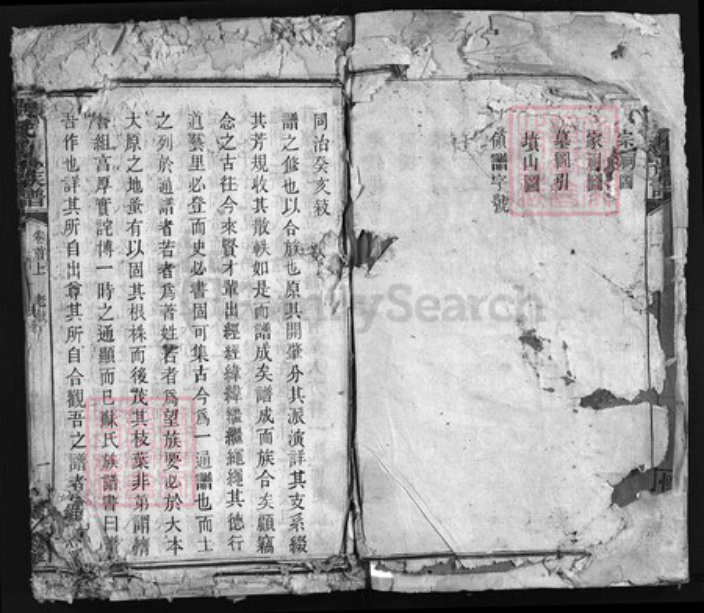 宗祠圖
家廟圖
墓圖引
墳山圖
領譜字號
同治癸亥敍
譜之修也以合族也原其開肇分其派演詳其支系綴
其芳規收其散軼如是而譜成矣譜成而族合矣顧竊
念之古往今來賢才輩出經經緯緯繼繼繩繩其德行
道藝里必登而史必書固可集古今爲一通譜也而士
之列於通譜者若者爲著姓若者爲望族要必於大本
大原之地蚤有以固其根株而後茂其枝葉非第謂
組高厚實詫博一時之通顯而已蘇氏族譜書曰
吾作也詳其所自出尊其所自合觀吾之譜者
族譜
卷首上
FamilySearch